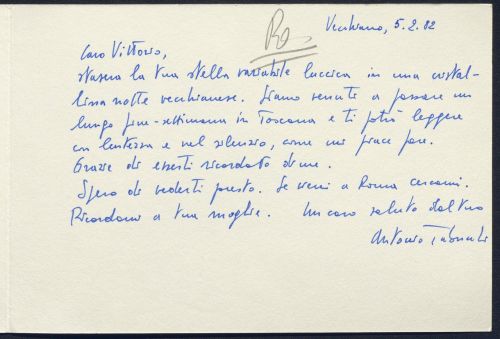 Vecchiano, 5.2.82
Ro
Caro Vittorio,
stasera la tua stella variabile luccica in una cristal-
lina notte vecchianese. Siamo venuti a passare un
lungo fine-settimana in Toscana e ti potrò leggere
con lentezza e nel silenzio, come mi piace fare.
Grazie di esserti ricordato di me.
Spero di vederti presto. Se vieni a Roma cercami.
Ricordami a tua moglie. Un caro saluto dal tuo
Antonio Tabucchi